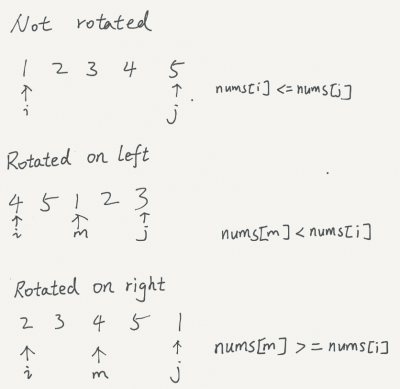 Not rotated
1 2 3 4 5
↑ ↑
i j
nums[i] <= nums[j]
Rotated on left
4 5 1 2 3
↑ ↑ ↑
i m j
nums[m] < nums[i]
Rotated on right
2 3 4 5 1
↑ ↑ ↑
i m j
nums[m] >= nums[i]